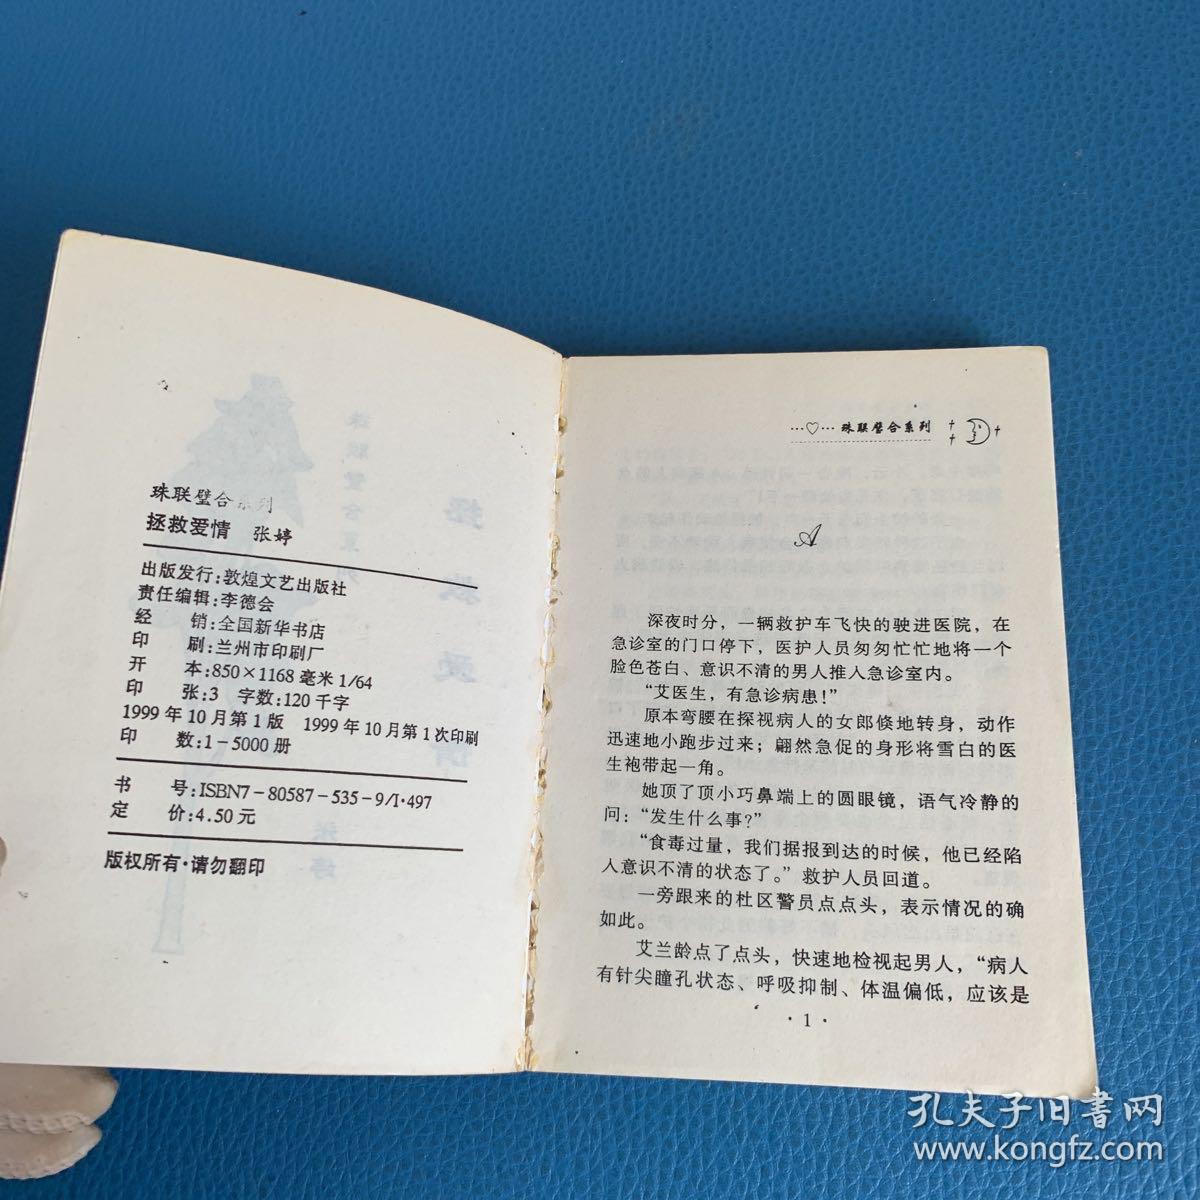 珠联璧合系列
拯救爱情 张婷
出版发行:敦煌文艺出版社
责任编辑:李德会
经 销:全国新华书店
印 刷:兰州市印刷厂
开 本:850×1168毫米1/64
印 张:3 字数:120千字
1999年10月第1版 1999年10月第1次印刷
印 数:1-5000册
书 号:ISBN7-80587-535-9/I·497
定 价:4.50元
版权所有·请勿翻印
…♡…珠联璧合系列
A
深夜时分，一辆救护车飞快的驶进医院，在
急诊室的门口停下，医护人员匆匆忙忙地将一个
脸色苍白、意识不清的男人推人急诊室内。
“艾医生，有急诊病患！”
原本弯腰在探视病人的女郎倏地转身，动作
迅速地小跑步过来；翩然急促的身形将雪白的医
生袍带起一角。
她顶了顶小巧鼻端上的圆眼镜，语气冷静的
问：“发生什么事？”
“食毒过量，我们据报到达的时候，他已经陷
人意识不清的状态了。”救护人员回道。
一旁跟来的杜区警员点点头，表示情况的确
如此。
艾兰龄点了点头，快速地检视起男人，“病人
有针尖瞳孔状态、呼吸抑制、体温偏低，应该是
·1·
孔夫子旧书网
www.kongfz.com